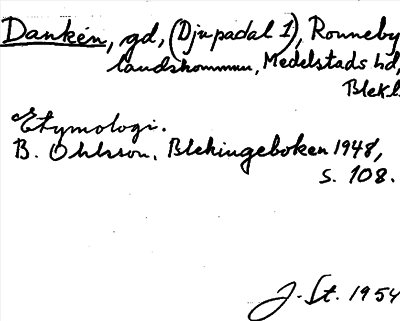 Dankén, gd, (Djupadal 1), Ronneby
landskommun, Medelstads hd,
Blekl.
Etymologi.
B. Ohlsson, Blekingeboken 1948,
s. 108.
J. St. 1954